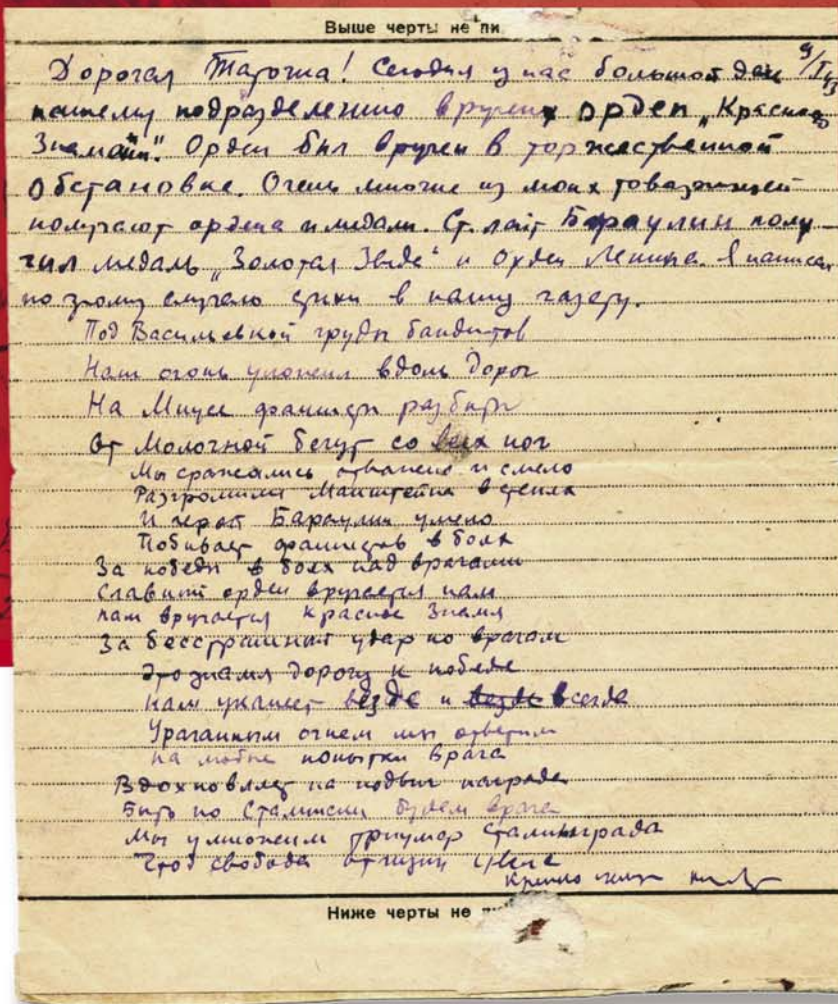 Выше черты не пи
Дорогая Тагочка! Сегодня у нас большой день
нашему подразделению вручен орден „Красного
Знамени". Орден был вручен в торжественной
обстановке. Очень многие из моих товарищей
получают ордена и медали. Ст. лейт Бараулин полу
чил медаль „Золотая Звезда" и Орден Ленина. Я написал
по этому случаю стихи в нашу газету.
Под Васильевкой груды бандитов
Наш огонь уложил вдоль дорог
На Миусе фашисты разбиты
От Молочной бегут со всех ног
Мы сражались отважно и смело
Разгромили Манштейна в степях
И герой Бараулин умело
Побивает фашистов в боях
За победы в боях над врагами
Славный орден вручается нам
Нам вручается Красное Знамя
За бесстрашный удар по врагам
Это знамя дорогу к победе
Нам укажет везде и везде всегда
Ураганным огнем мы ответим
На любые попытки врага
Вдохновляет на подвиг награда
Бить по Сталински будем врага
Мы умножим триумф Сталинграда
Чтоб свобода отчизны
Крепко
Ниже черты не пи